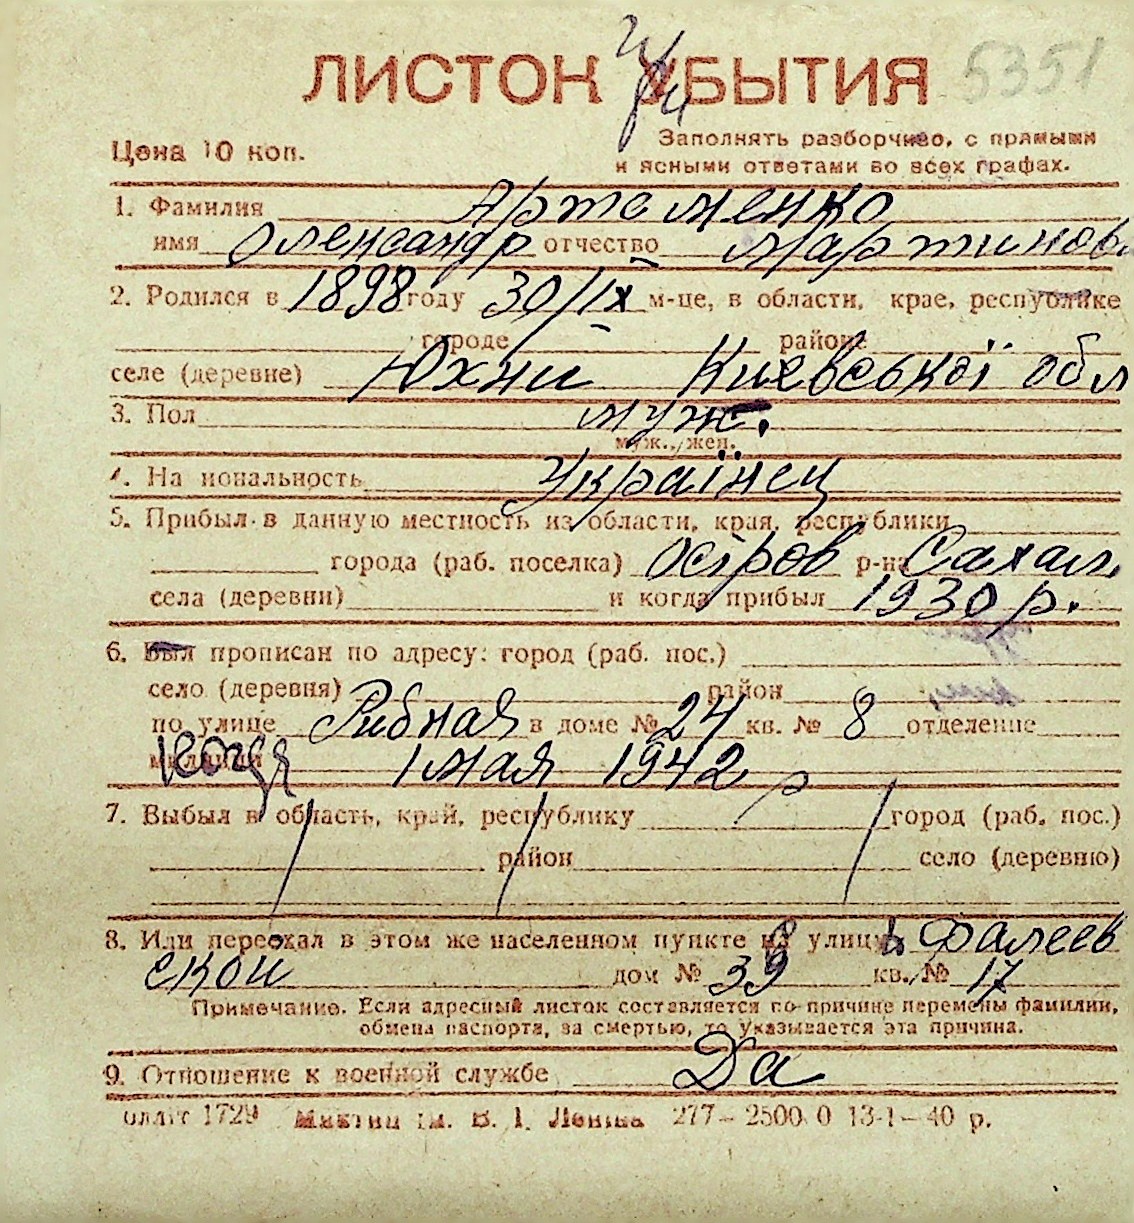 ЛИСТОК УБЫТИЯ 5351
Цена 10 коп.
Заполнять разборчиво, с прямыми
и ясными ответами во всех графах.
1. Фамилия Артеменко
имя Олександр отчество Мартинов
2. Родился в 1898 году 30/IX м-це, в области, крае, республике
городе районе
селе (деревне) Юхни Киевської обл
3. Пол муж.
муж., жен.
4. Национальность Українец
5. Прибыл в данную местность из области, края, республики
города (раб. поселка) острів р-на Сахал.
села (деревни) и когда прибыл 1930 р.
6. Был прописан по адресу: город (раб. пос.)
село (деревня) район
по улице Рибная в доме № 24 кв. № 8 отделение
милиции когда 1 мая 1942 р
7. Выбыл в область, край, республику город (раб. пос.)
район село (деревню)
8. Или переехал в этом же населенном пункте на улицу Фалеев
ской дом № 39 кв. № 17
Примечание. Если адресный листок составляется по причине перемены фамилии,
обмена паспорта, за смертью, то указывается эта причина.
9. Отношение к военной службе Да
1729 ім. В. І. Леніна 277—2500.0 13-1—40 р.